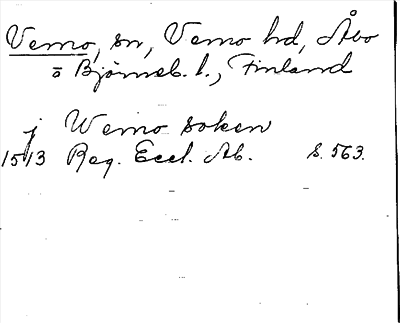 Vemo, sn, Vemo hd, Åbo
o Björneb. l., Finland
j Wemo soken
1513 Reg. Eccl. Ab. S. 563.